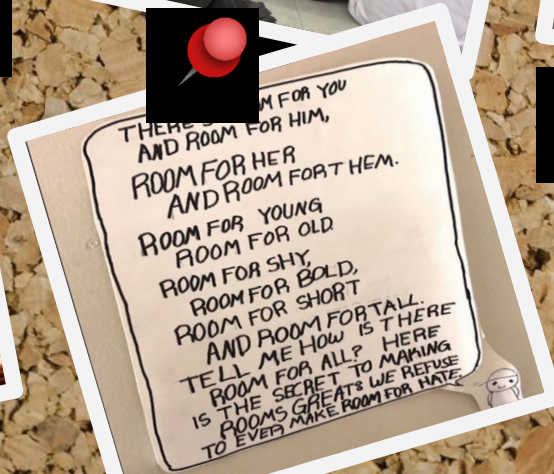 THERE'S ROOM FOR YOU
AND ROOM FOR HIM,
ROOM FOR HER
AND ROOM FOR THEM.
ROOM FOR YOUNG
ROOM FOR OLD
ROOM FOR SHY,
ROOM FOR BOLD,
ROOM FOR SHORT
AND ROOM FOR TALL.
TELL ME HOW IS THERE
ROOM FOR ALL? HERE
IS THE SECRET TO MAKING
ROOMS GREAT: WE REFUSE
TO EVER MAKE ROOM FOR HATE.